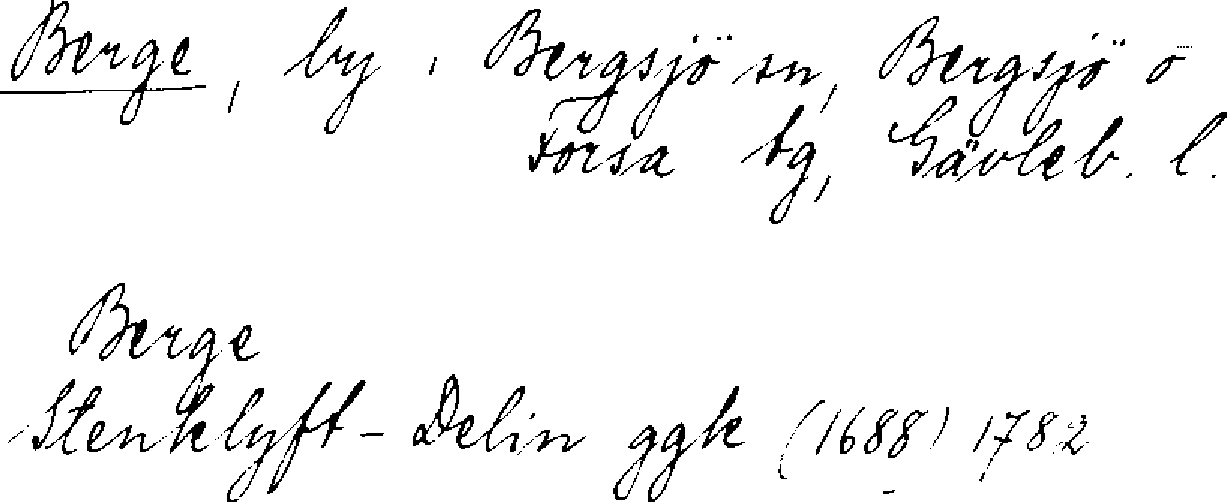 Berge, by i Bergsjö sn, Bergsjö o
Forsa tg, Gävleb. l.
Berge
Stenklyft-Delin ggk (1688) 1782